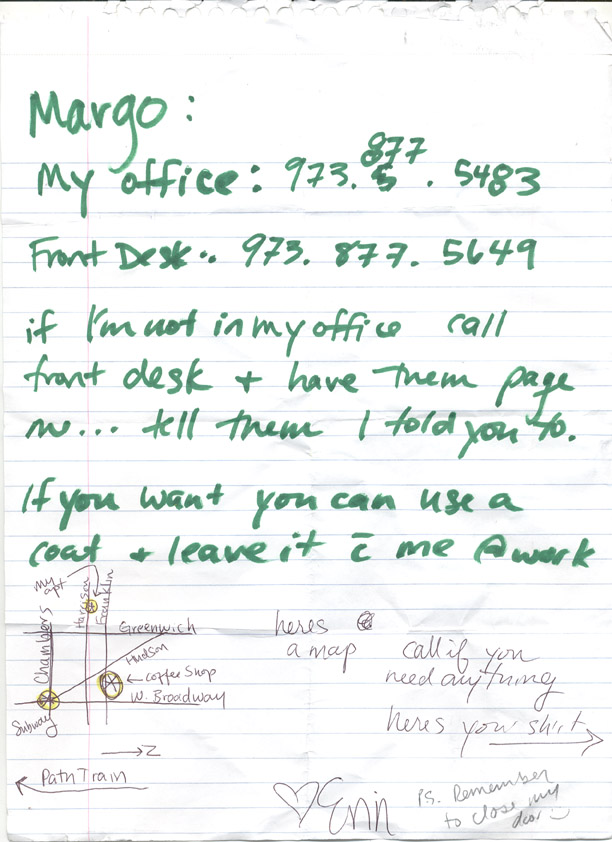 Margo:
877
My office: 973. 5 . 5483
Front Desk: 973. 877. 5649
if I'm not in my office call
front desk + have them page
me... tell them I told you to.
If you want you can use a
coat + leave it c̄ me @ work
my apt
Chambers
Harrison
Franklin
Greenwich
Hudson
← coffee shop
W. Broadway
Subway
→ Z
← Path Train
heres
a map
call if you
need anything
heres your shirt →
♡ Erin
PS. Remember
to close my
door :)